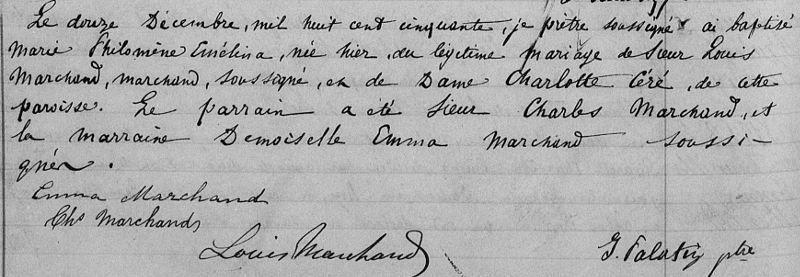 Le douze Décembre, mil huit cent cinquante, je prêtre soussigné ai baptisé
Marie Philomène Emélina, née hier, du légitime mariage de Sieur Louis
Marchand, marchand, soussigné, et de Dame Charlotte Céré, de cette
paroisse. Le parrain a été Sieur Charles Marchand, et
la marraine Demoiselle Emma Marchand soussi-
gnés.
Emma Marchand
Chs Marchand
Louis Marchand
J. ptre